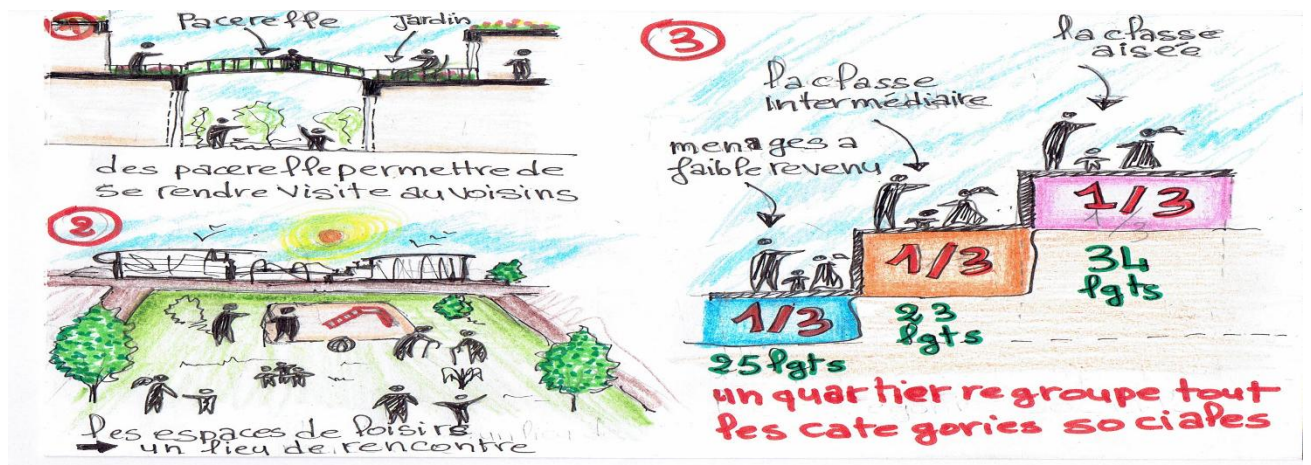 1
Pacerelle
Jardin
des pacerelle permettre de
se rendre visite au voisins
2
les espaces de loisirs
➡ un lieu de rencontre
3
la classe
aisée
la classe
intermédiaire
menages a
faible revenu
1/3
1/3
1/3
1/3
34
lgts
23
lgts
25 lgts
un quartier regroupe tout
les categories sociales